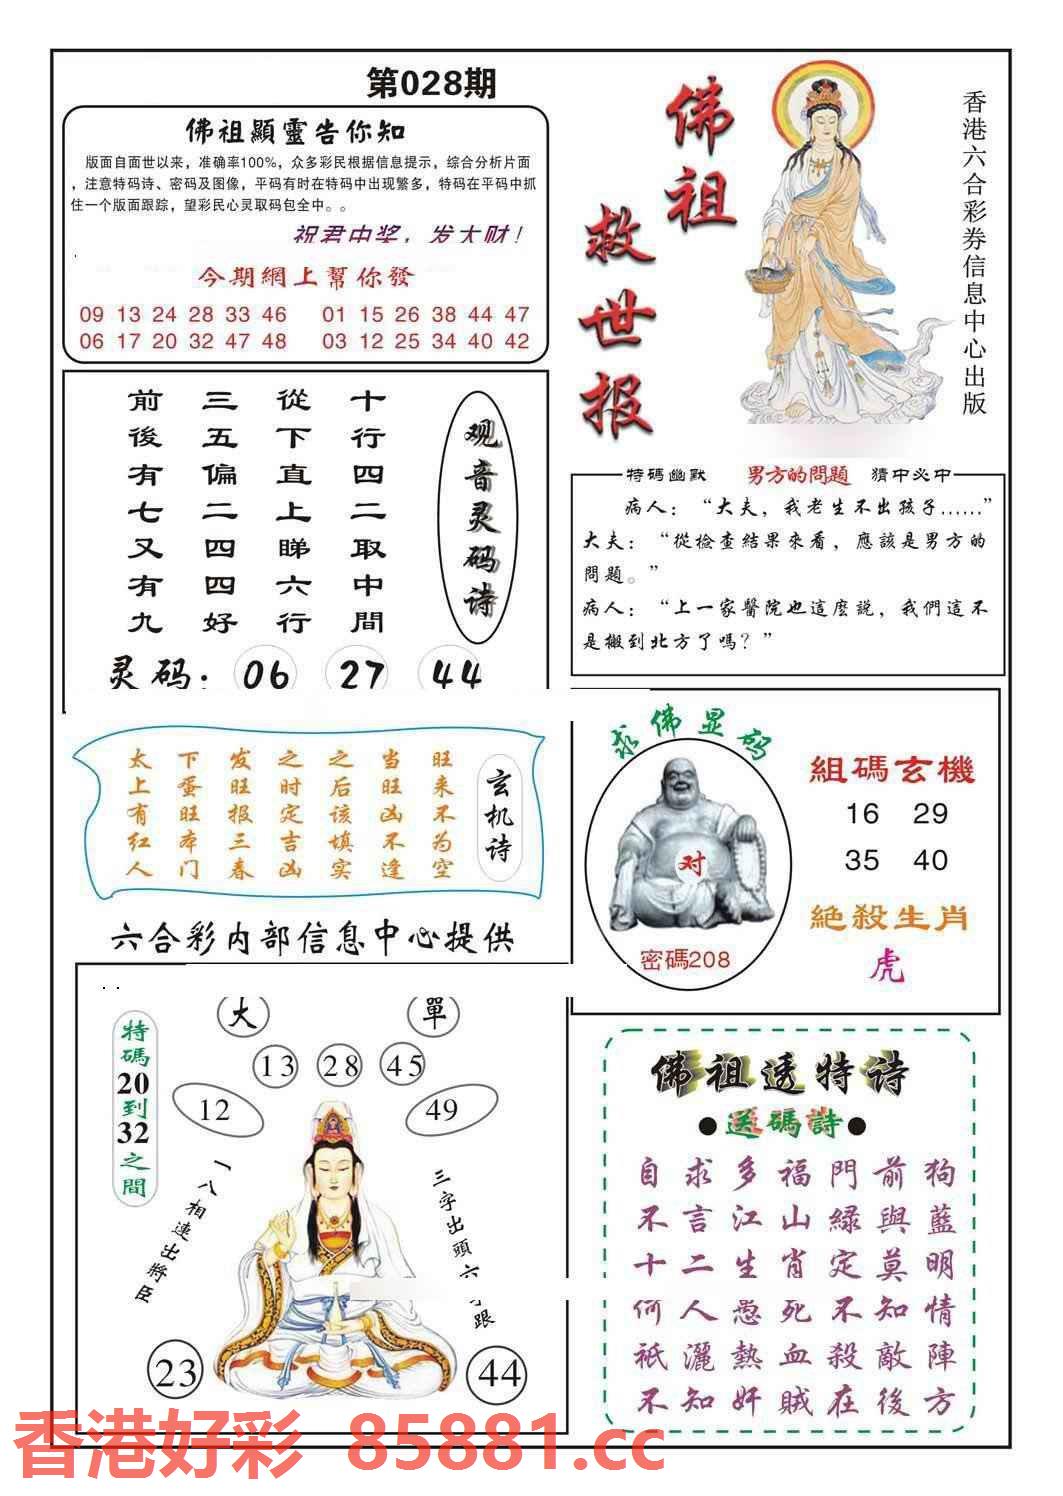 第028期
佛祖顯靈告你知
版面自面世以来，准确率100%，众多彩民根据信息提示，综合分析片面
，注意特码诗、密码及图像，平码有时在特码中出现繁多，特码在平码中抓
住一个版面跟踪，望彩民心灵取码包全中。。
祝君中奖，发大财！
今期網上幫你發
09 13 24 28 33 46 01 15 26 38 44 47
06 17 20 32 47 48 03 12 25 34 40 42
佛祖
救世报
香港六合彩券信息中心出版
观音灵码诗
十行四二取中間
從下直上睇六行
三五偏二四四好
前後有七又有九
灵码：06 27 44
特碼幽默 男方的問題 猜中必中
病人：“大夫，我老生不出孩子……”
大夫：“從檢查結果來看，應該是男方的
問題。”
病人：“上一家醫院也這麼説，我們這不
是搬到北方了嗎？”
玄机诗
旺来不为空
当旺凶不逢
之后该填实
之时定吉凶
发旺报三春
下蛋旺本门
太上有红人
六合彩内部信息中心提供
求佛显码
对
密碼208
組碼玄機
16 29
35 40
絶殺生肖
虎
大 單
13 28 45
12 49
特碼20到32之間
一八相連出將臣
三字出頭六 跟
23 44
佛祖透特诗
●送碼詩●
自求多福門前狗
不言江山緑與藍
十二生肖定莫明
何人愚死不知情
祇灑熱血殺敵陣
不知奸賊在後方
香港好彩 85881.cc